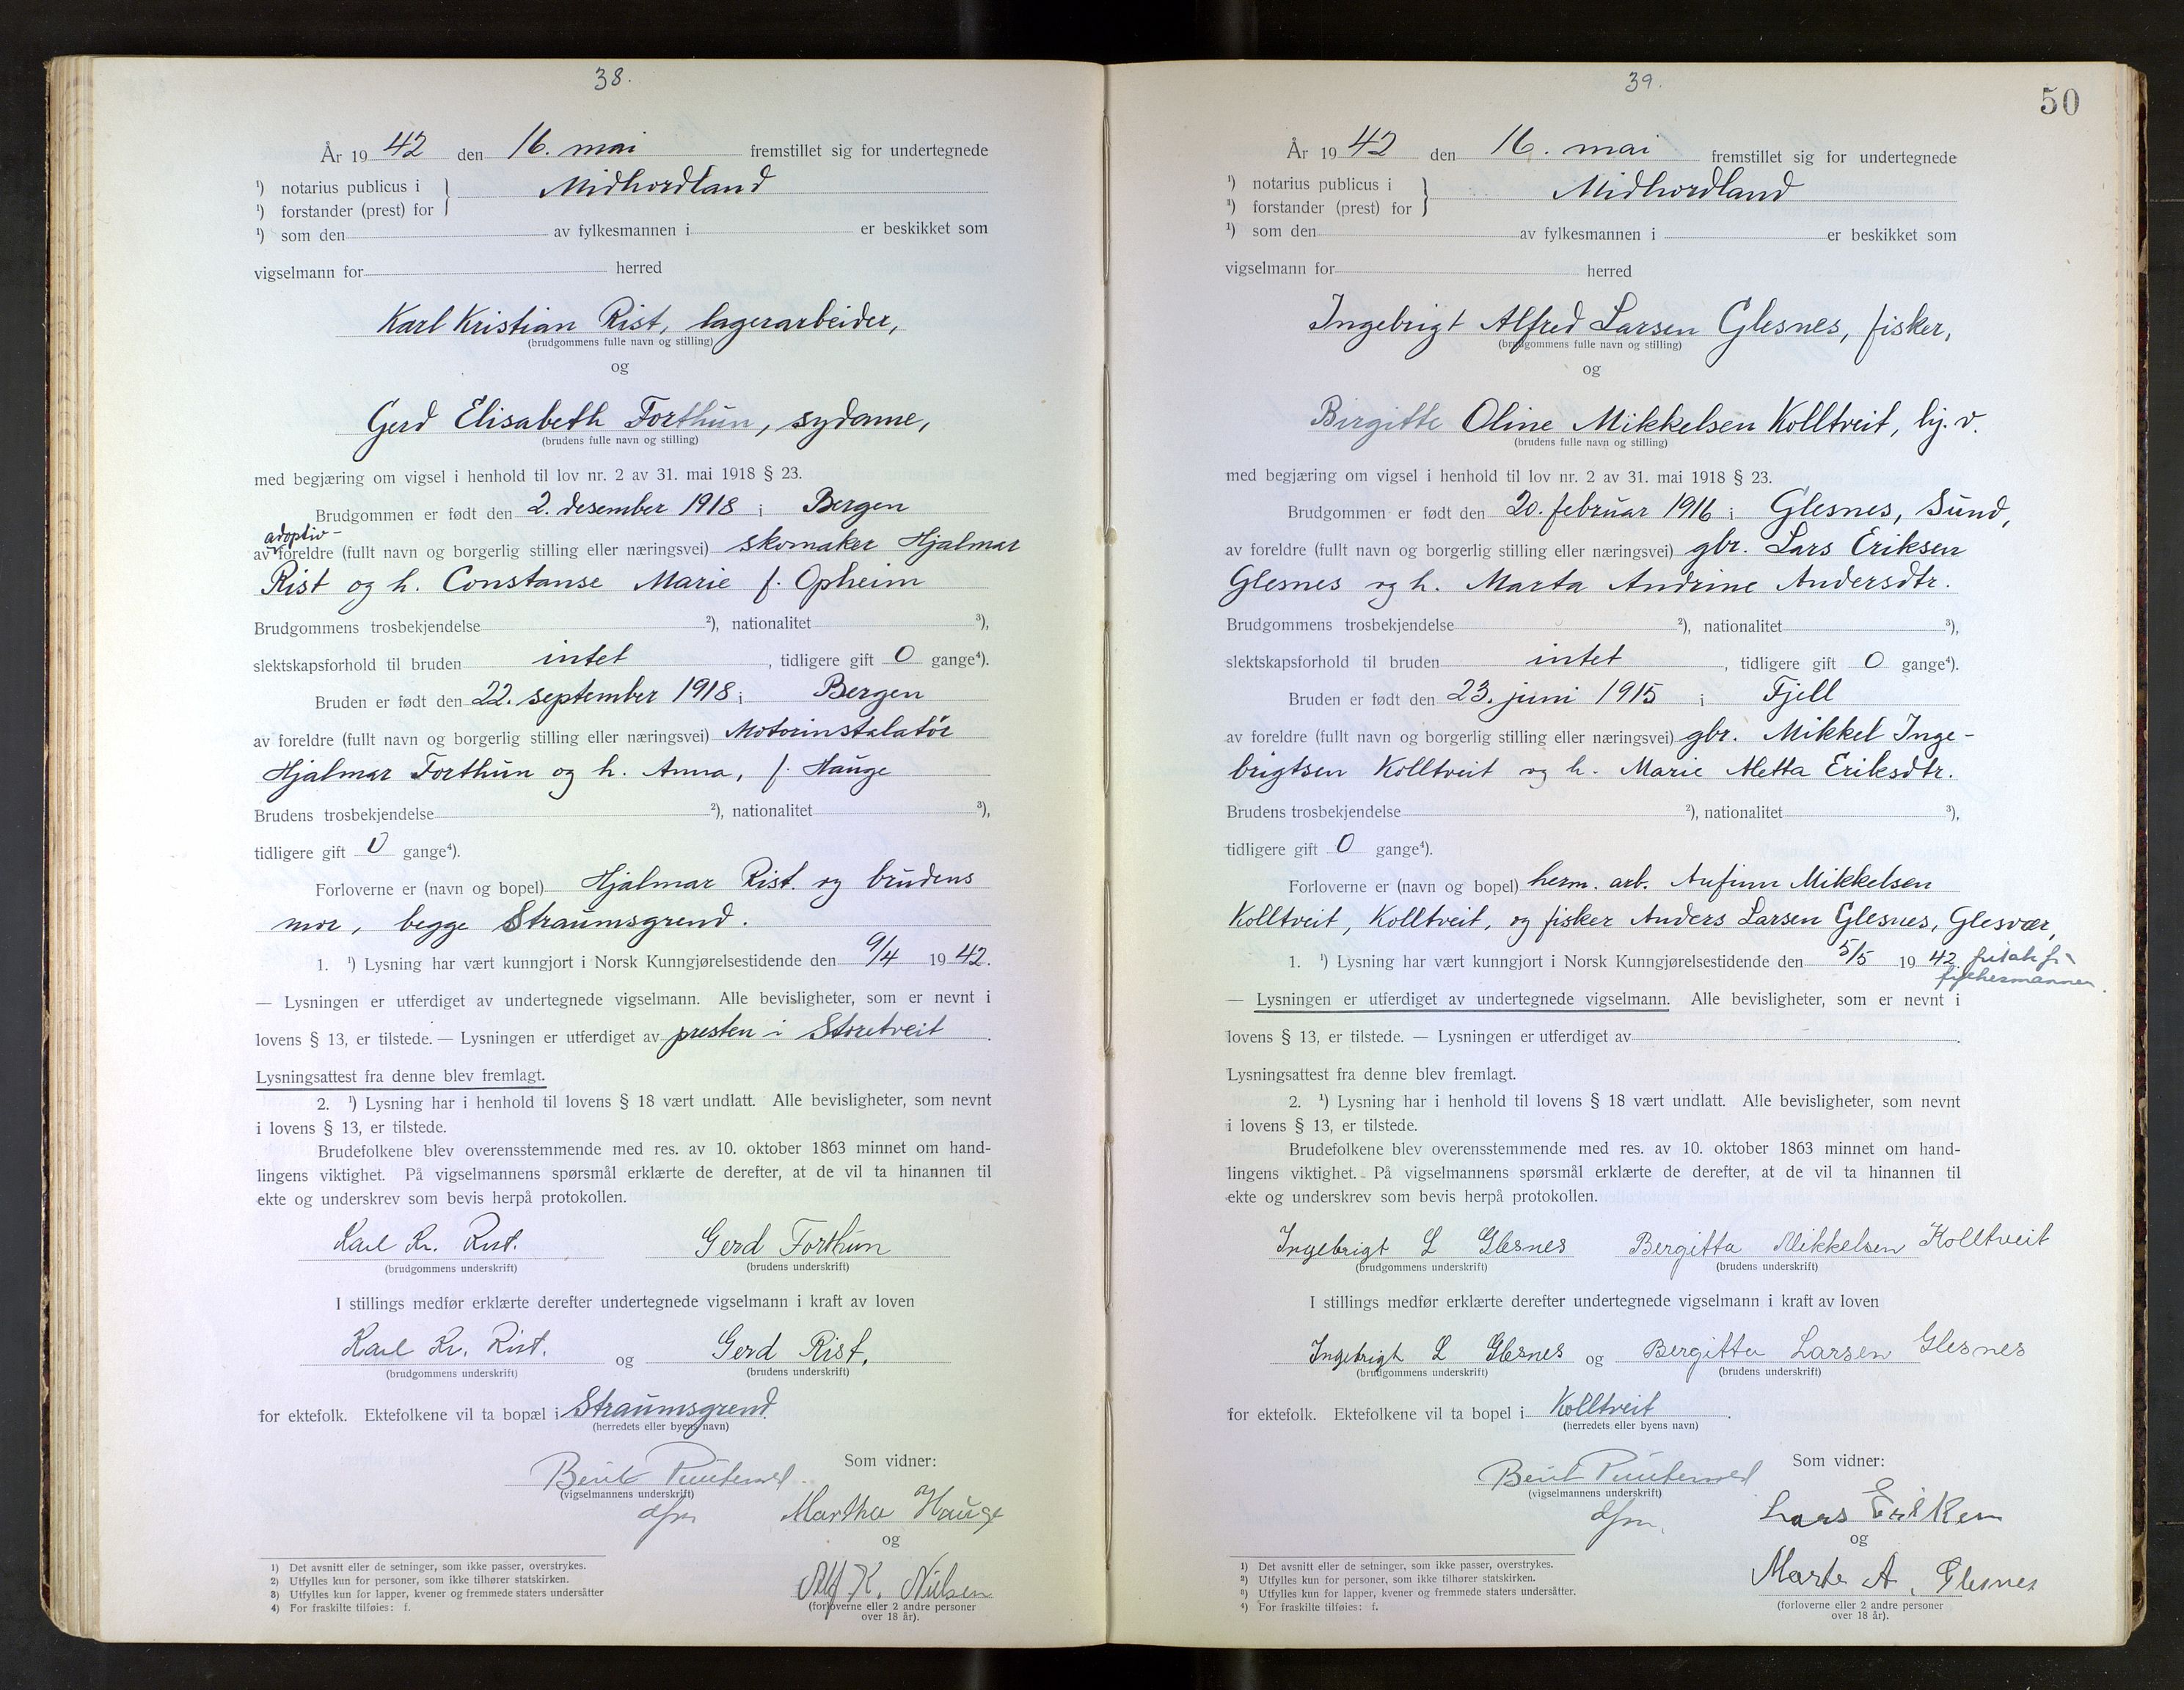 38.
År 19 42 den 16. mai fremstillet sig for undertegnede
¹) notarius publicus i
Midhordland
¹) forstander (prest) for
¹) som den av fylkesmannen i er beskikket som
vigselmann for herred
Karl Kristian Rist, lagerarbeider,
(brudgommens fulle navn og stilling)
og
Gerd Elisabeth Forthun, sydame,
(brudens fulle navn og stilling)
med begjæring om vigsel i henhold til lov nr. 2 av 31. mai 1918 § 23.
Brudgommen er født den 2. desember 1918 i Bergen
adoptiv-
av foreldre (fullt navn og borgerlig stilling eller næringsvei) skomaker Hjalmar
Rist og h. Constanse Marie f. Opheim
Brudgommens trosbekjendelse ²), nationalitet ³),
slektskapsforhold til bruden intet, tidligere gift 0 gange⁴).
Bruden er født den 22. september 1918 i Bergen
av foreldre (fullt navn og borgerlig stilling eller næringsvei) Motorinstalatör
Hjalmar Forthun og h. Anna, f. Hauge
Brudens trosbekjendelse ²), nationalitet ³),
tidligere gift 0 gange⁴).
Forloverne er (navn og bopel) Hjalmar Rist. og brudens
mor, begge Straumsgrend.
1. ¹) Lysning har vært kunngjort i Norsk Kunngjørelsestidende den 9/4 19 42.
— Lysningen er utferdiget av undertegnede vigselmann. Alle bevisligheter, som er nevnt i
lovens § 13, er tilstede. — Lysningen er utferdiget av presten i Storetveit.
Lysningsattest fra denne blev fremlagt.
2. ¹) Lysning har i henhold til lovens § 18 vært undlatt. Alle bevisligheter, som nevnt
i lovens § 13, er tilstede.
Brudefolkene blev overensstemmende med res. av 10. oktober 1863 minnet om hand-
lingens viktighet. På vigselmannens spørsmål erklærte de derefter, at de vil ta hinannen til
ekte og underskrev som bevis herpå protokollen.
Karl Kr. Rist. Gerd Forthun
(brudgommens underskrift) (brudens underskrift)
I stillings medfør erklærte derefter undertegnede vigselmann i kraft av loven
Karl Kr. Rist. og Gerd Rist.
(brudgommens underskrift) (brudens underskrift)
for ektefolk. Ektefolkene vil ta bopæl i Straumsgrend.
(herredets eller byens navn)
Som vidner:
Berit
(vigselmannens underskrift)
dfm
Martha Hauge
og
Alf K. Nilsen
(forloverne eller 2 andre personer
over 18 år).
1) Det avsnitt eller de setninger, som ikke passer, overstrykes.
2) Utfylles kun for personer, som ikke tilhører statskirken.
3) Utfylles kun for lapper, kvener og fremmede staters undersåtter
4) For fraskilte tilføies: f.
39.
50
År 19 42 den 16. mai fremstillet sig for undertegnede
¹) notarius publicus i
Midhordland
¹) forstander (prest) for
¹) som den av fylkesmannen i er beskikket som
vigselmann for herred
Ingebrigt Alfred Larsen Glesnes, fisker,
(brudgommens fulle navn og stilling)
og
Birgitte Oline Mikkelsen Kolltveit, hj. v.
(brudens fulle navn og stilling)
med begjæring om vigsel i henhold til lov nr. 2 av 31. mai 1918 § 23.
Brudgommen er født den 20. februar 1916 i Glesnes, Sund,
av foreldre (fullt navn og borgerlig stilling eller næringsvei) gbr. Lars Eriksen
Glesnes og h. Marta Andrine Andersdtr.
Brudgommens trosbekjendelse ²), nationalitet ³),
slektskapsforhold til bruden intet, tidligere gift 0 gange⁴).
Bruden er født den 23. juni 1915 i Fjell
av foreldre (fullt navn og borgerlig stilling eller næringsvei) gbr. Mikkel Inge-
brigtsen Kolltveit og h. Marie Aletta Eriksdtr.
Brudens trosbekjendelse ²), nationalitet ³),
tidligere gift 0 gange⁴).
Forloverne er (navn og bopel) herm. arb. Anfinn Mikkelsen
Kolltveit, Kolltveit, og fisker Anders Larsen Glesnes, Glesvær,
1. ¹) Lysning har vært kunngjort i Norsk Kunngjørelsestidende den 5/5 19 42 fritak fr
fylkesmannen.
— Lysningen er utferdiget av undertegnede vigselmann. Alle bevisligheter, som er nevnt i
lovens § 13, er tilstede. — Lysningen er utferdiget av .
Lysningsattest fra denne blev fremlagt.
2. ¹) Lysning har i henhold til lovens § 18 vært undlatt. Alle bevisligheter, som nevnt
i lovens § 13, er tilstede.
Brudefolkene blev overensstemmende med res. av 10. oktober 1863 minnet om hand-
lingens viktighet. På vigselmannens spørsmål erklærte de derefter, at de vil ta hinannen til
ekte og underskrev som bevis herpå protokollen.
Ingebrigt L Glesnes Bergitta Mikkelsen Kolltveit
(brudgommens underskrift) (brudens underskrift)
I stillings medfør erklærte derefter undertegnede vigselmann i kraft av loven
Ingebrigt L Glesnes og Bergitta Larsen Glesnes
(brudgommens underskrift) (brudens underskrift)
for ektefolk. Ektefolkene vil ta bopel i Kolltveit.
(herredets eller byens navn)
Som vidner:
Berit
(vigselmannens underskrift)
dfm.
Lars Eriksen
og
Marta A. Glesnes
(forloverne eller 2 andre personer
over 18 år).
1) Det avsnitt eller de setninger, som ikke passer, overstrykes.
2) Utfylles kun for personer, som ikke tilhører statskirken.
3) Utfylles kun for lapper, kvener og fremmede staters undersåtter.
4) For fraskilte tilføies: f.